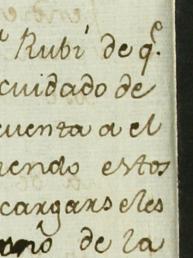 Rubí de q.e
cuidado de
cuenta a el
iendo estos
cargarseles
de la